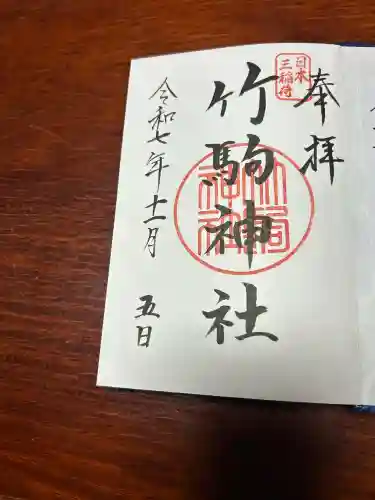 奉拝
日本
三稲荷
竹駒神社
令和七年十一月
五日